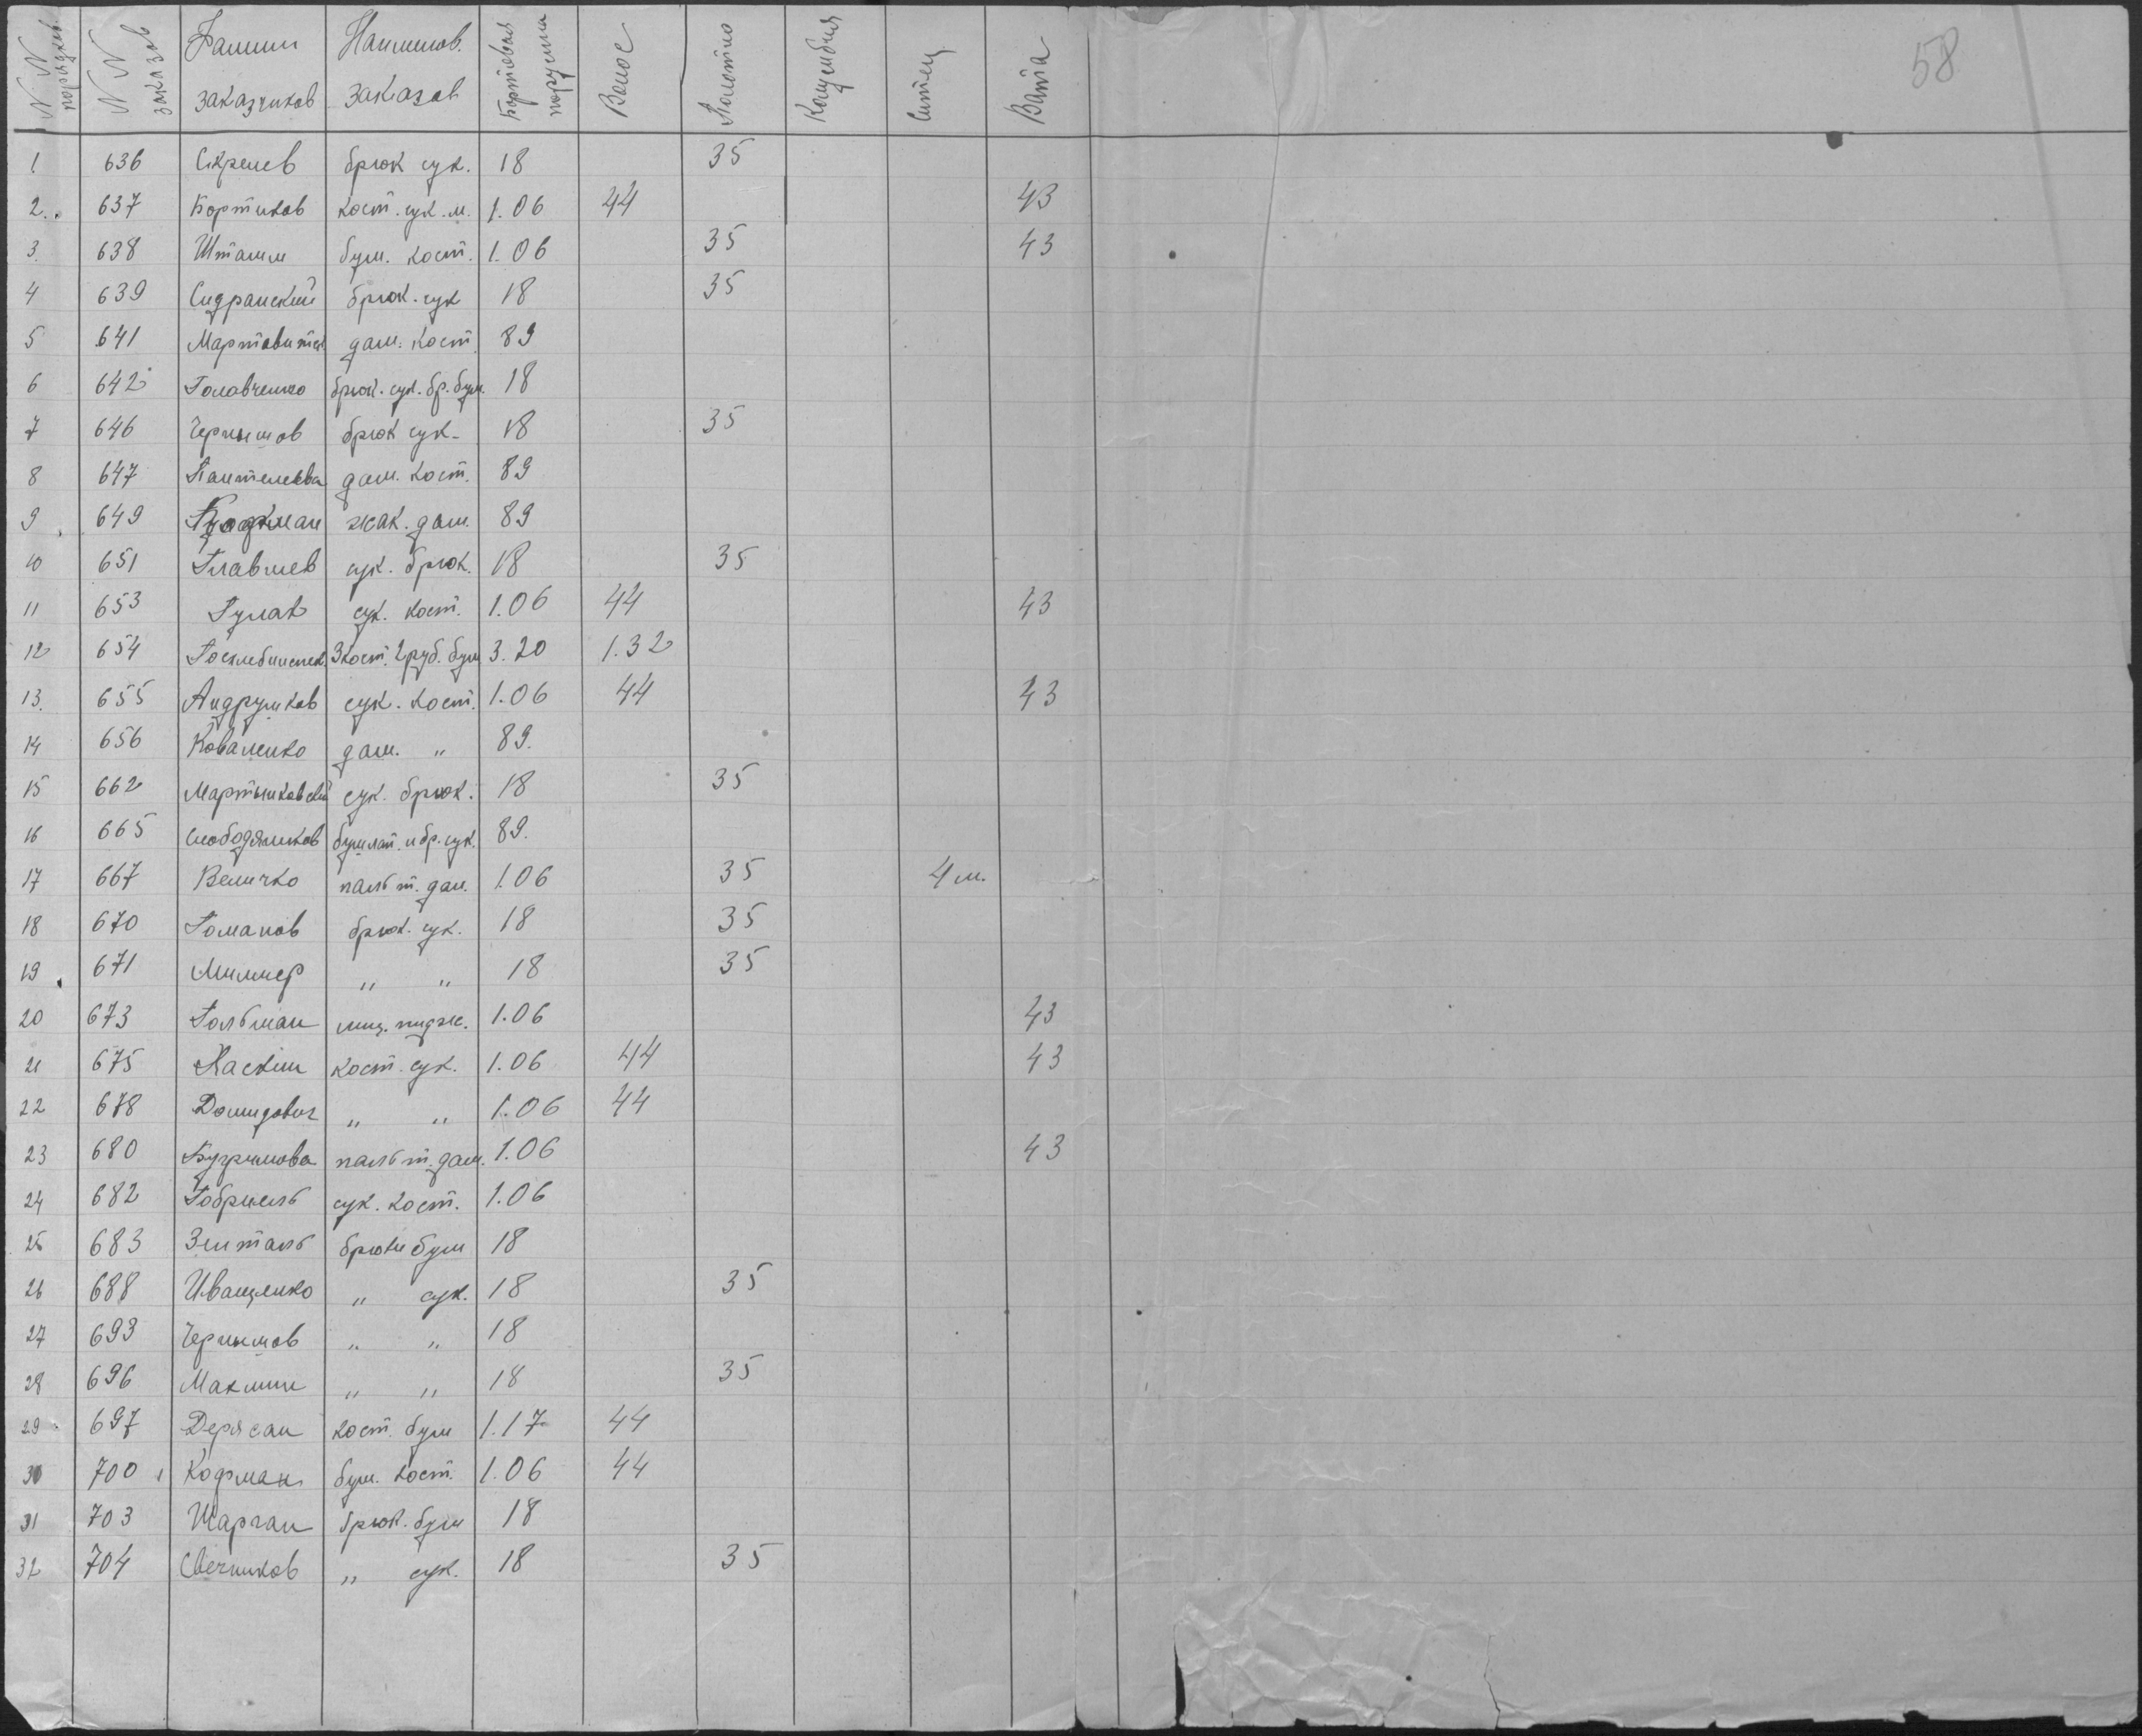 58
N N порядков. N N заказов Фамил заказчиков Наименов. заказов Бортовая парусина Волос Полотно Ситец Вата
1. 636 Скрелев брюк сук. 18 35
2. 637 Бортиков кост. сук. м. 1.06 44 43
3. 638 Штамм бум. кост. 1.06 35 43
4 639 Сидранский брюк. сук 18 35
5 641 дам. кост 89
6 642 Головченко брюк. сук. бр. бум. 18
7 646 Чернышов брюк сук. 18 35
8 647 Пантелеева дам. кост. 89
9 649 жак. дам. 89
10 651 Главлев сук. брюк. 18 35
11 653 Гулак сук. кост. 1.06 44 43
12 654 3 кост. 2 руб. бум 3.20 1.32
13. 655 Андрушков сук. кост. 1.06 44 43
14 656 Коваленко дам. " 89.
15 662 Мартынковский сук. брюк. 18 35
16 665 Слободяников бушлат. и бр. сук. 89.
17 667 Величко пальт. дам. 1.06 35 4 м.
18 670 Романов брюк. сук. 18 35
19 671 Миллер " " 18 35
20 673 Гольман пидж. 1.06 43
21 675 Ласкин кост. сук. 1.06 44 43
22 678 Домидович " " 1.06 44
23 680 Бугримова пальт. дам. 1.06 43
24 682 Габриель сук. кост. 1.06
25 683 Зенталь брюки бум 18
26 688 Иващенко " сук. 18 35
27 693 Чернышов " " 18
28 696 Маклин " " 18 35
29 697 Дерксан кост. бум 1.17 44
30 700 Кофман бум. кост. 1.06 44
31 703 Шарган брюк. бум 18
32 704 Свечников " сук. 18 35